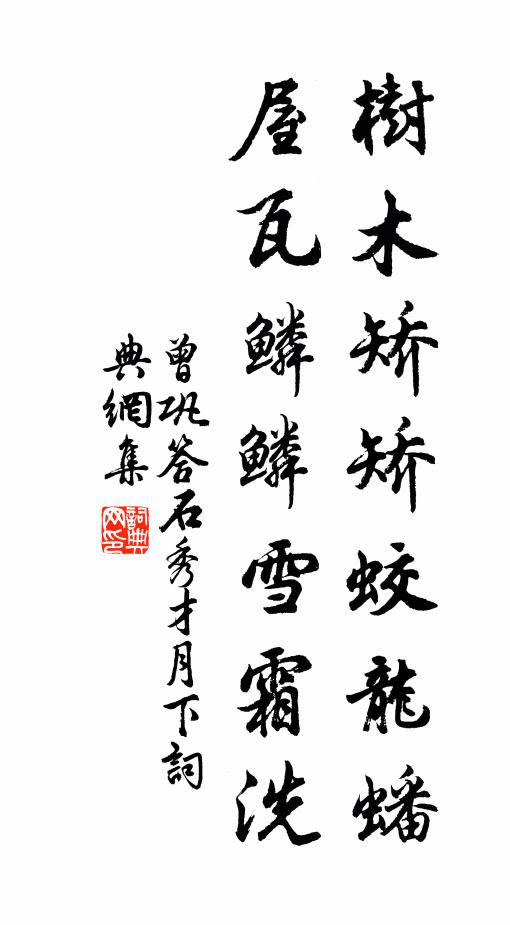 樹木矯矯蛟龍蟠
屋瓦鱗鱗雪霜洗
曾巩答石秀才月下詞
典網集
詞典网印